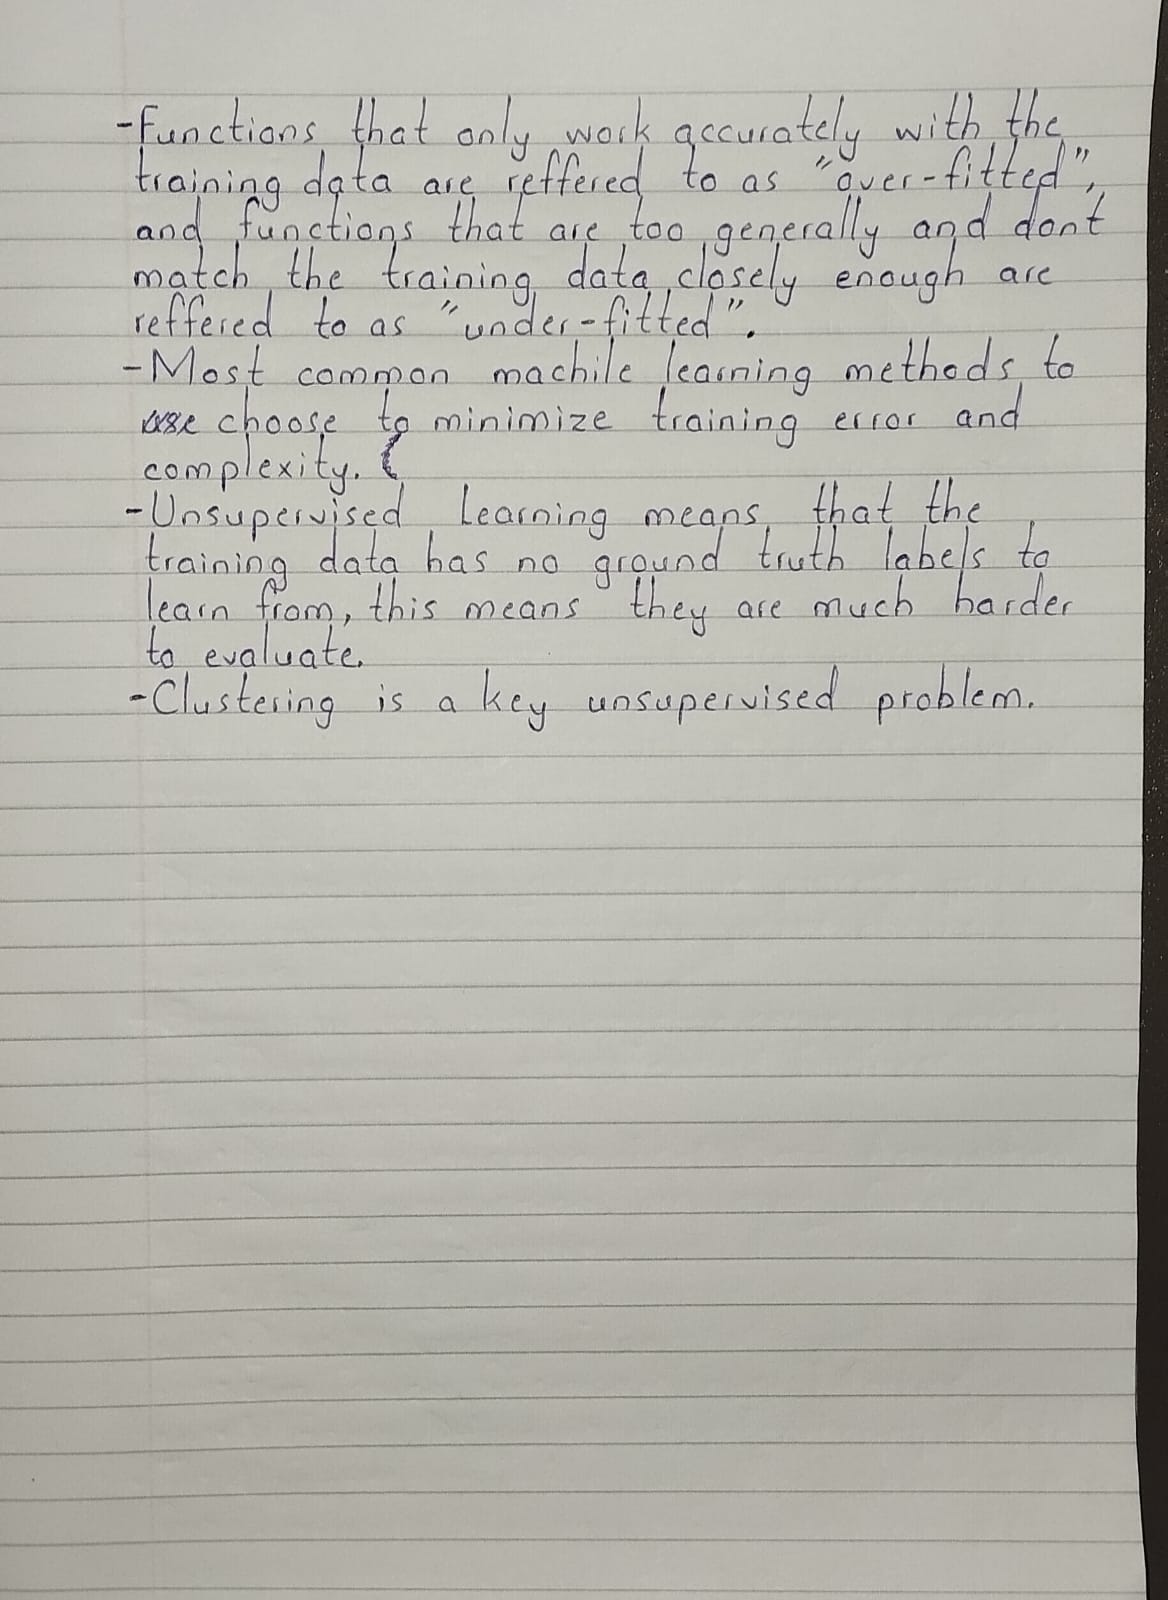 -Functions that only work accurately with the
training data are reffered to as "over-fitted",
and functions that are too generally and dont
match the training data closely enough are
reffered to as "under-fitted".
-Most common machile learning methods to
choose to minimize training error and
complexity.
-Unsupervised Learning means that the
training data has no ground truth labels to
learn from, this means they are much harder
to evaluate.
-Clustering is a key unsupervised problem.